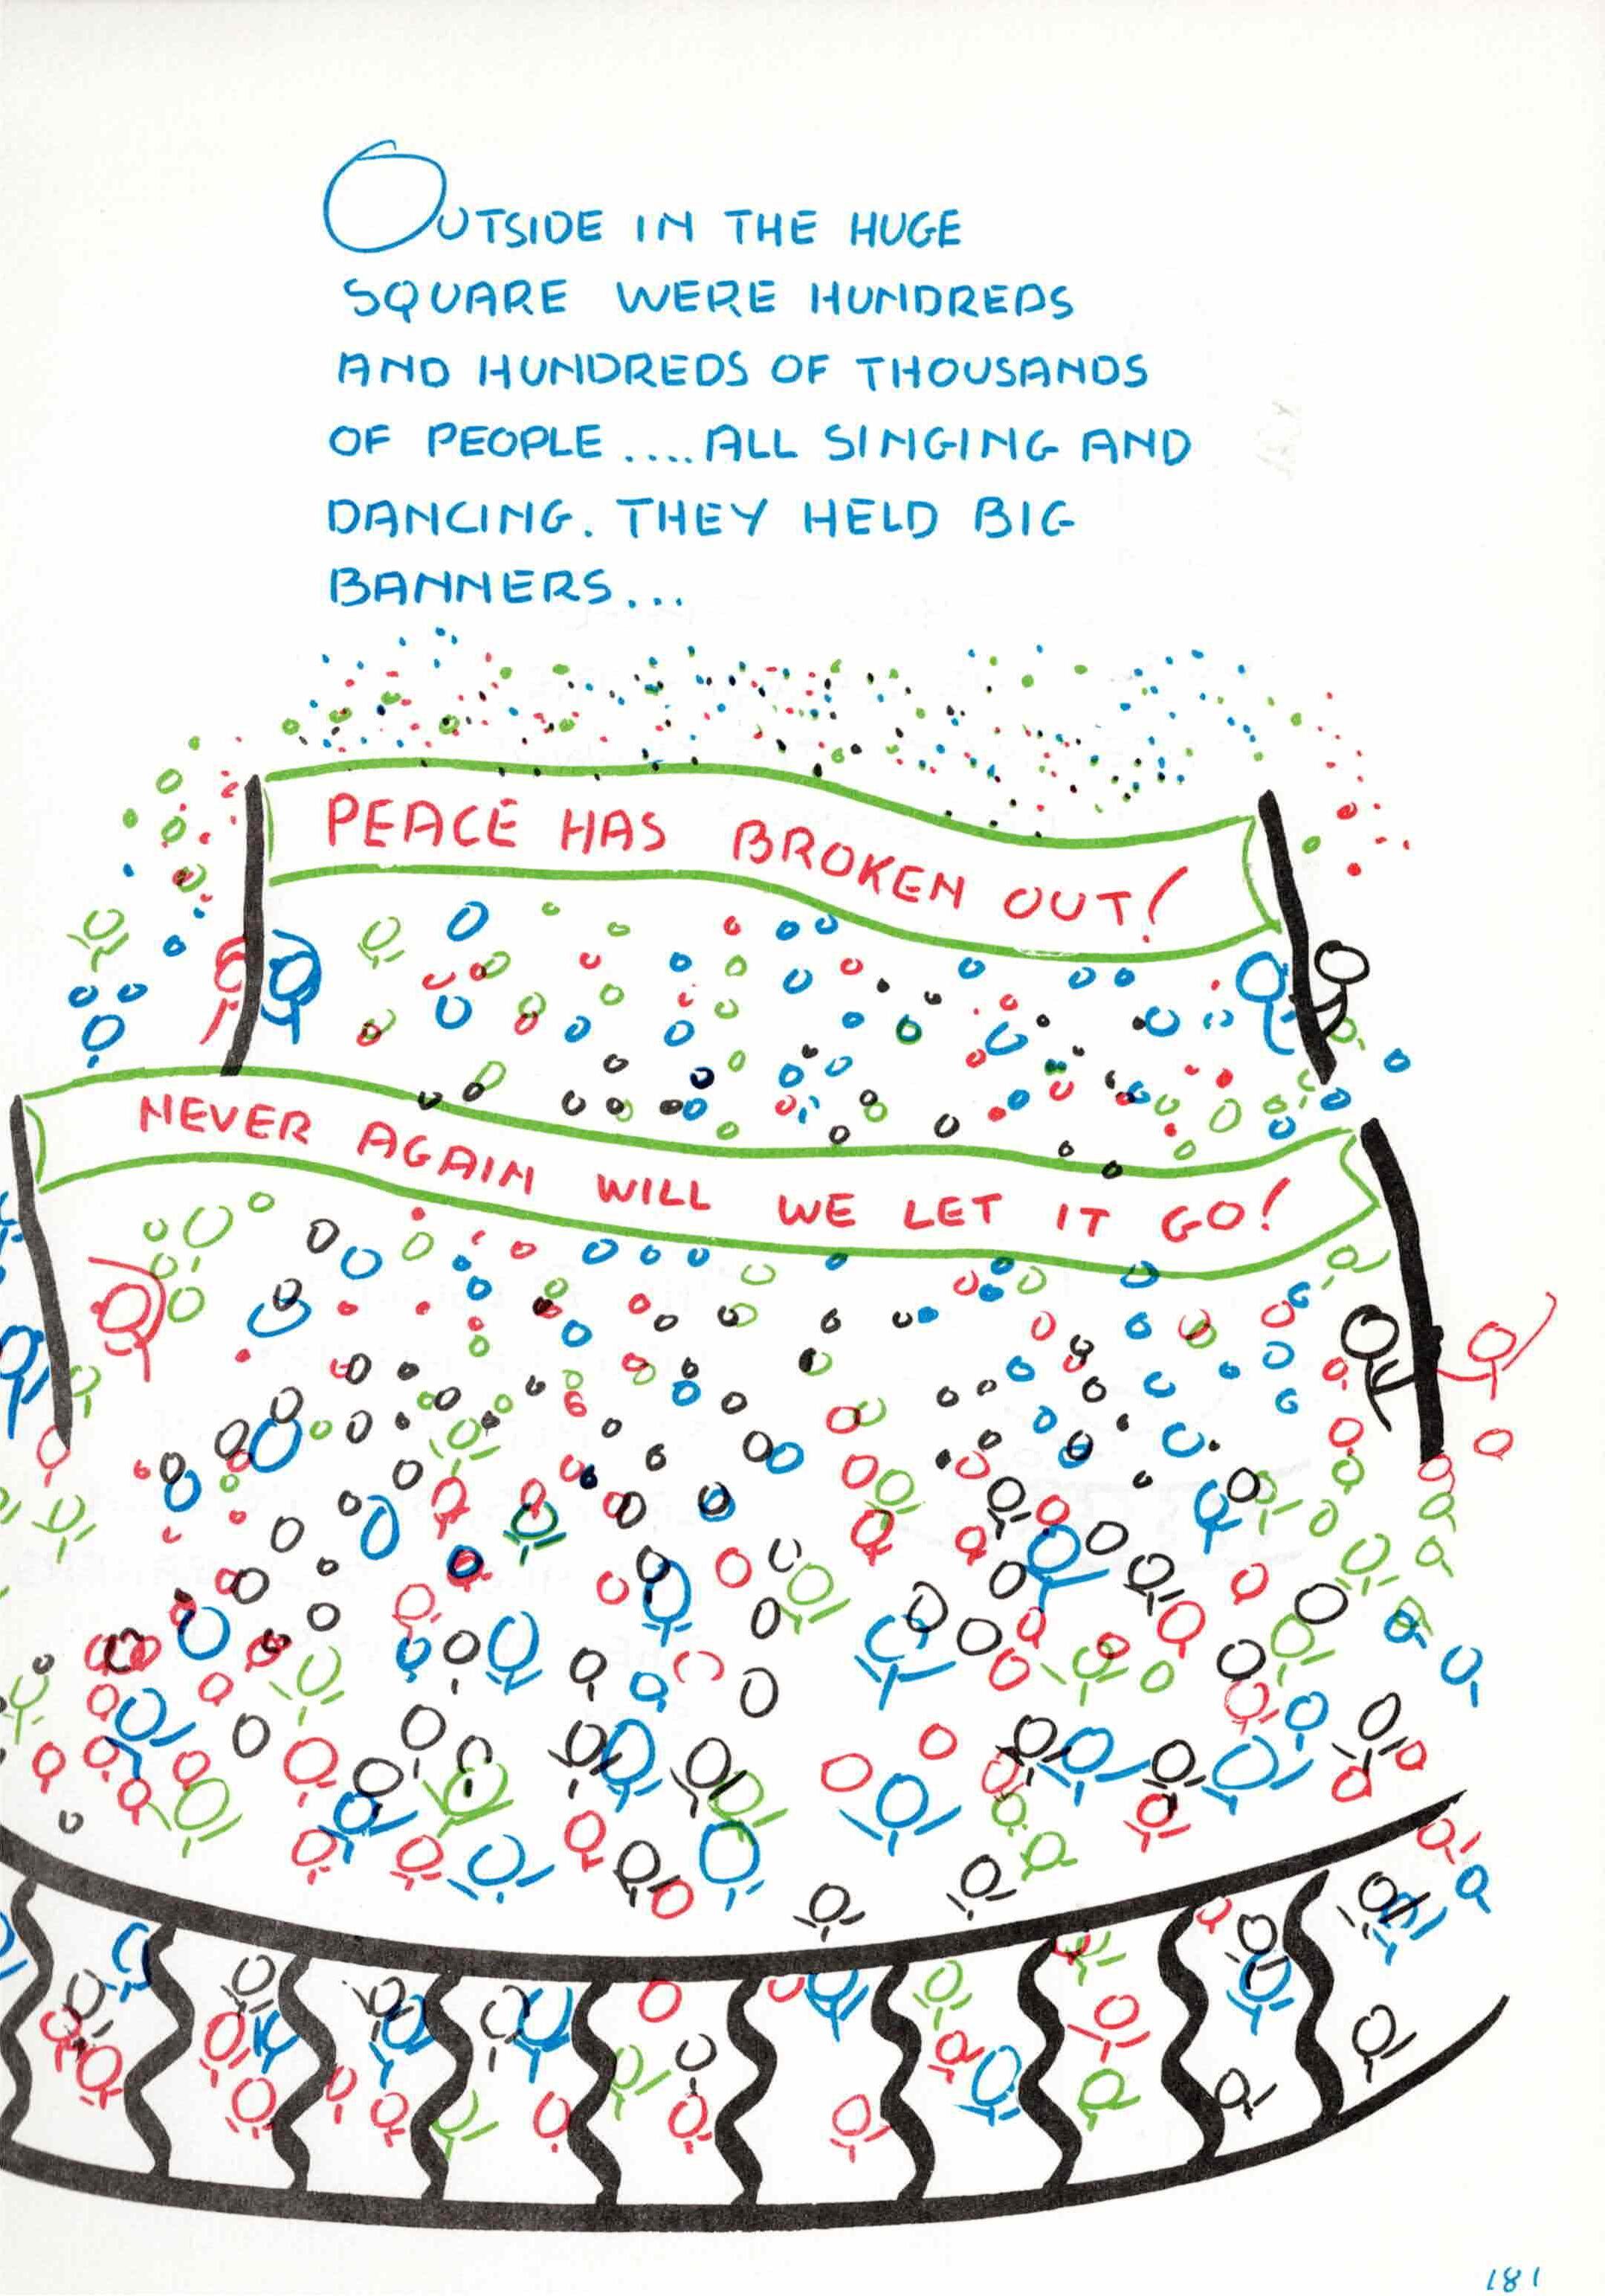 OUTSIDE IN THE HUGE
SQUARE WERE HUNDREDS
AND HUNDREDS OF THOUSANDS
OF PEOPLE ....ALL SINGING AND
DANCING. THEY HELD BIG
BANNERS...
PEACE HAS BROKEN OUT!
NEVER AGAIN WILL WE LET IT GO!
181